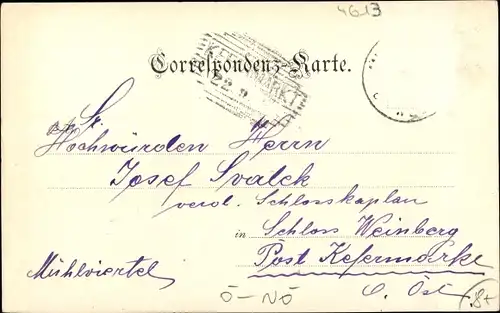 4613
Correspondenz-Karte.
KEFERMARKT
22 9
Sr.
Hochwürden Herrn
Josef Svalek
verd. Schlosskaplan
in Schloss Weinberg
Post Kefermarkt
Mühlviertel
O. Öst
Ö-NÖ
8+